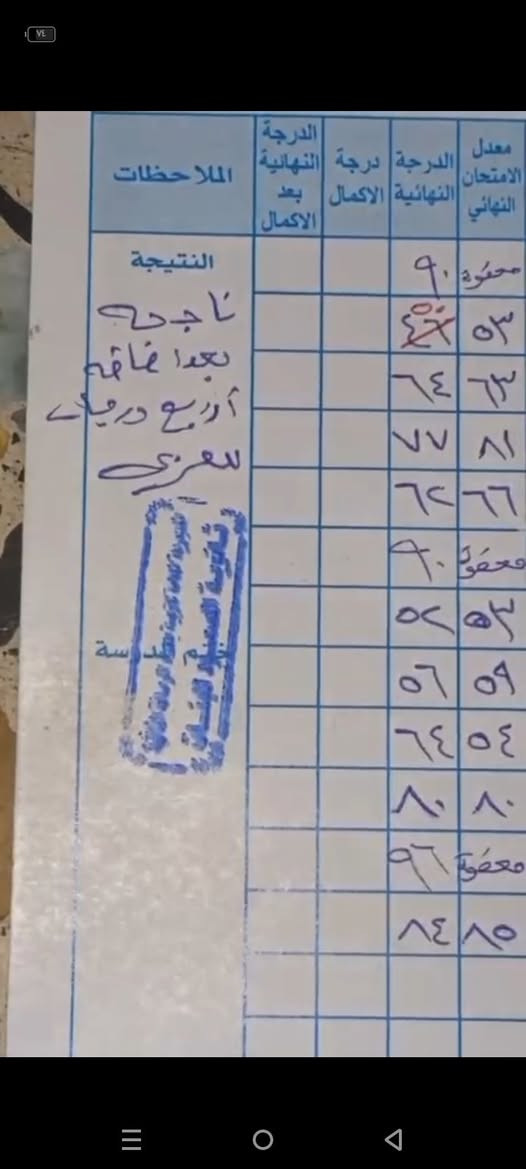 معدل الامتحان النهائي | الدرجة النهائية | درجة الاكمال | الدرجة النهائية بعد الاكمال | الملاحظات
معفوة | ٩٠ | النتيجة
٥٣ | ٤٦ ٥٠ | ناجحه
بعد اضافه
٦٣ | ٦٤ | أربع درجات
٨١ | ٧٧ | للعربي
٦٦ | ٦٢
معفوة | ٩٠
٥٣ | ٥٢
٥٩ | ٥٦
٥٤ | ٦٤
٨٠ | ٨٠
معفوة | ٩٦
٨٥ | ٨٤
ثانوية للبنات